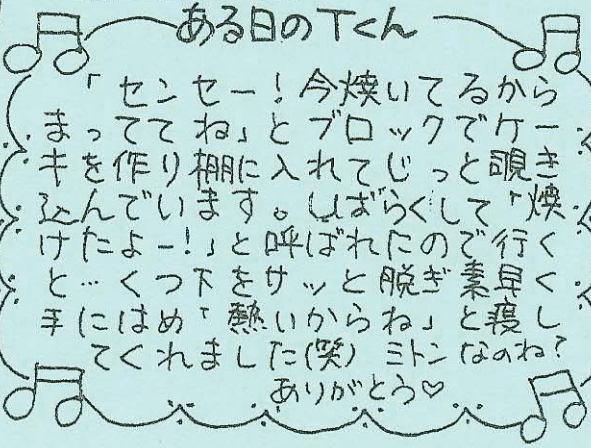 ある日のTくん
「センセー！今焼いてるから
まっててね」とブロックでケー
キを作り棚に入れてじっと覗き
込んでいます。しばらくして「焼
けたよー！」と呼ばれたので行く
と…くつ下をサッと脱ぎ素早く
手にはめ「熱いからね」と渡し
てくれました(笑) ミトンなのね？
ありがとう♡